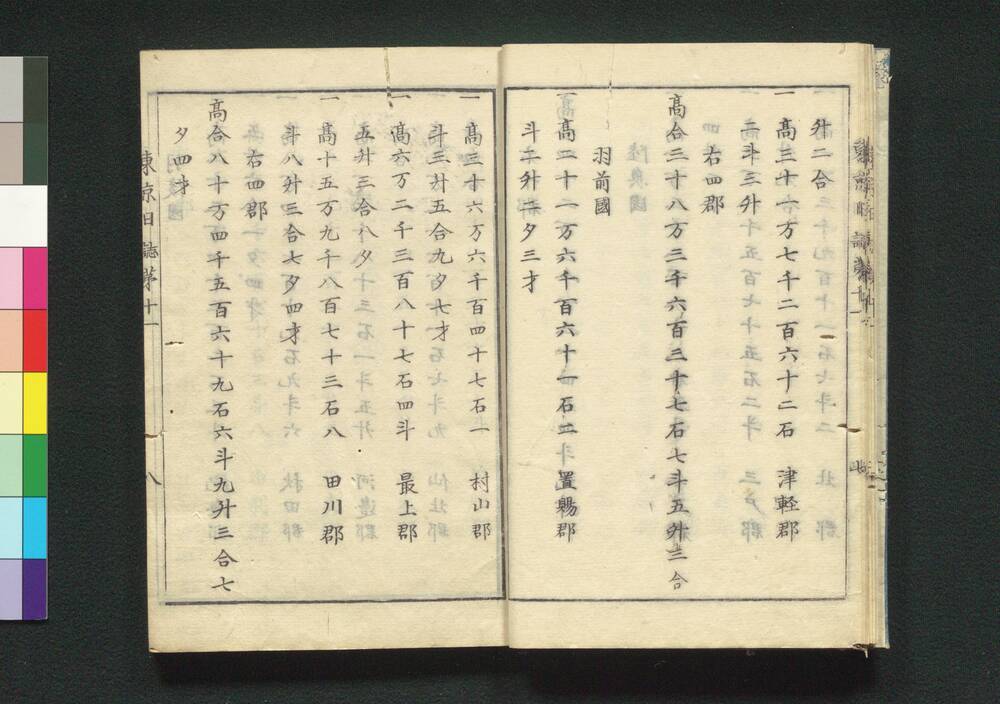 升二合
一高三十一万七千二百六十二石　津軽郡
二斗三升
右四郡
高合二十八万三千六百三十七石七斗五升三合
羽前國
一高二十一万六千百六十一石二斗　置賜郡
斗二升二夕三才
一高三十六万六千百四十七石一　村山郡
斗三升五合九夕七才
一高六万二千三百八十七石四斗　最上郡
五升三合八夕
一高十五万九千八百七十三石八　田川郡
斗八升三合七夕四才
右四郡
高合八十万四千五百六十九石六斗九升三合七
夕四才
東京日誌第十一　八